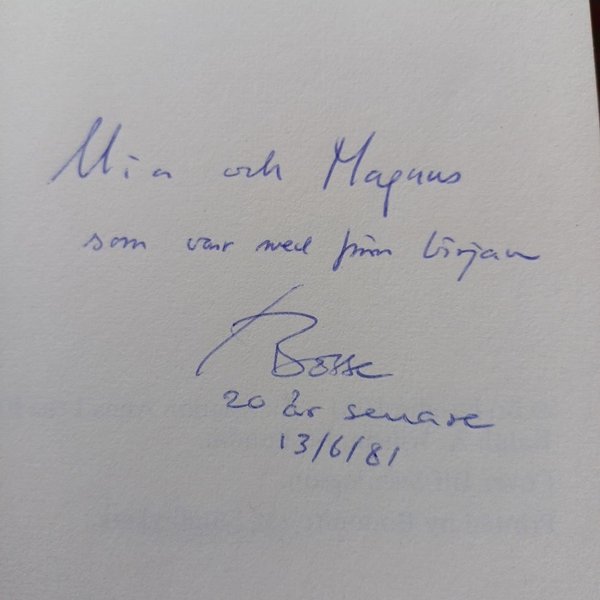 Mia och Magnus
som var med från början
Bosse
20 år senare
13/6/81